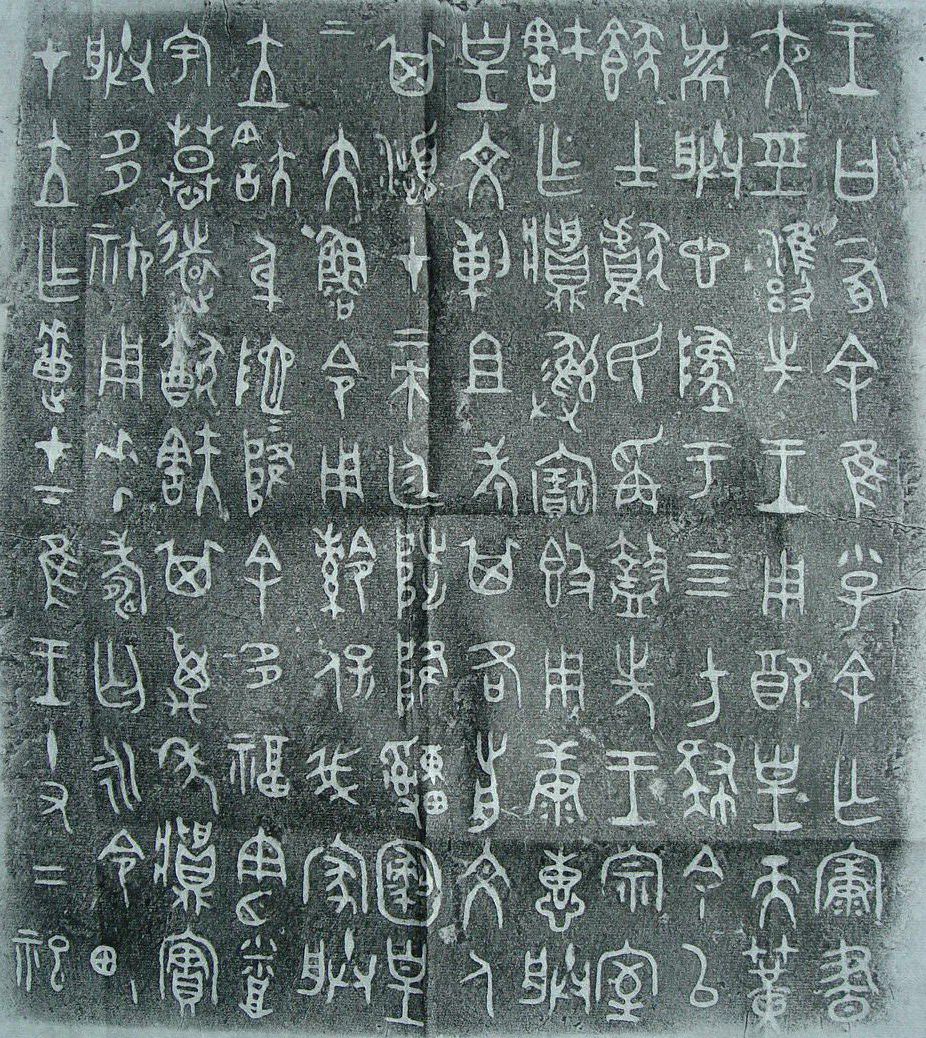 王曰有余隹小子余亡康晝
夜巠雝先王用配皇天簧
黹朕心墜于四方肆余以
士獻民爯盩先王宗室
㝬乍彝寶簋用康惠朕
皇文剌且考其各前文人
其瀕才帝廷陟降申皇
帝大魯令用保我家朕
立㝬身阤降余多福憲烝
宇慕遠猷㝬其萬年實
朕多禦用壽匄永令畯
才立乍疐才下隹王十又二祀